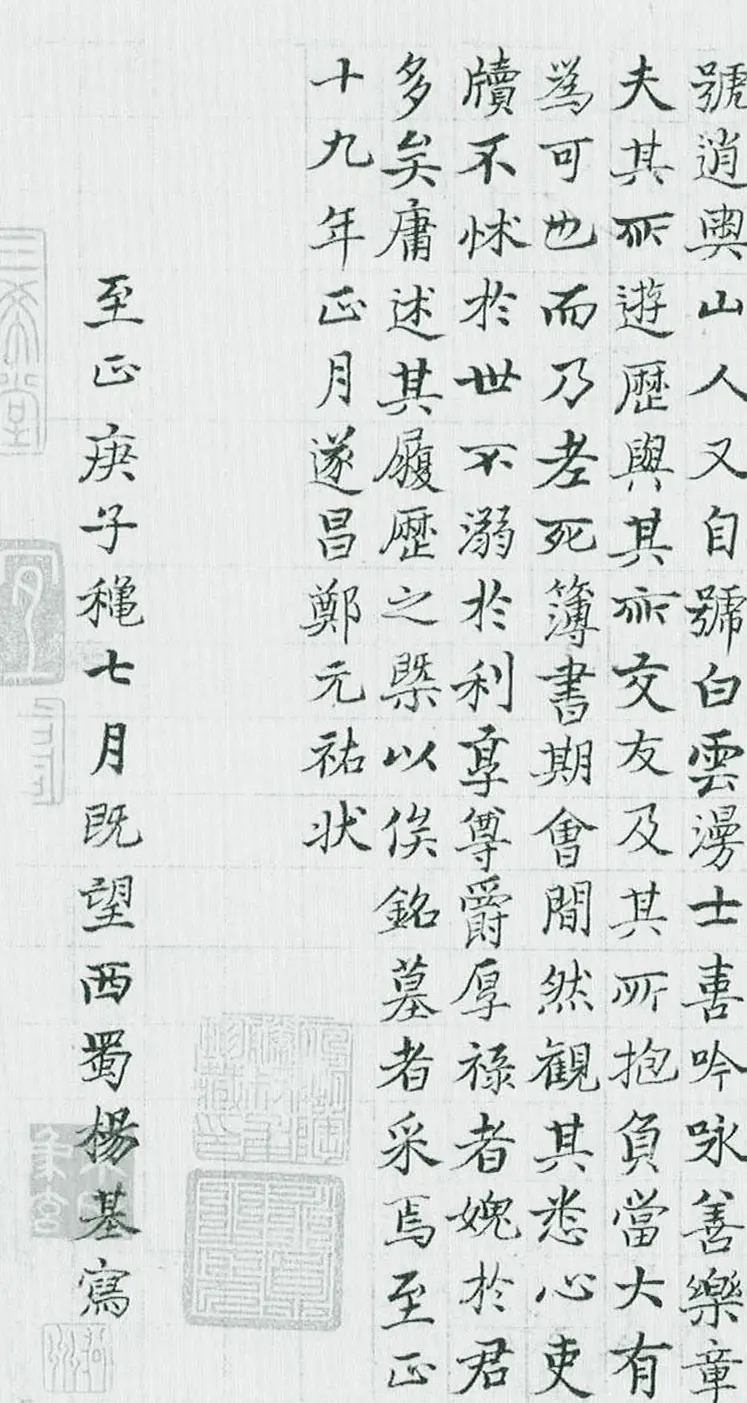 號逍輿山人又自號白雲漫士喜吟咏善樂章
夫其所遊歷與其所交友及其所抱負當大有
為可也而乃老死簿書期會間然觀其悉心吏
牘不怵於世不溺於利享尊爵厚禄者媿於君
多矣庸述其履歷之槩以俟銘墓者采焉至正
十九年正月遂昌鄭元祐状
至正庚子穐七月既望西蜀楊基寫
三希堂